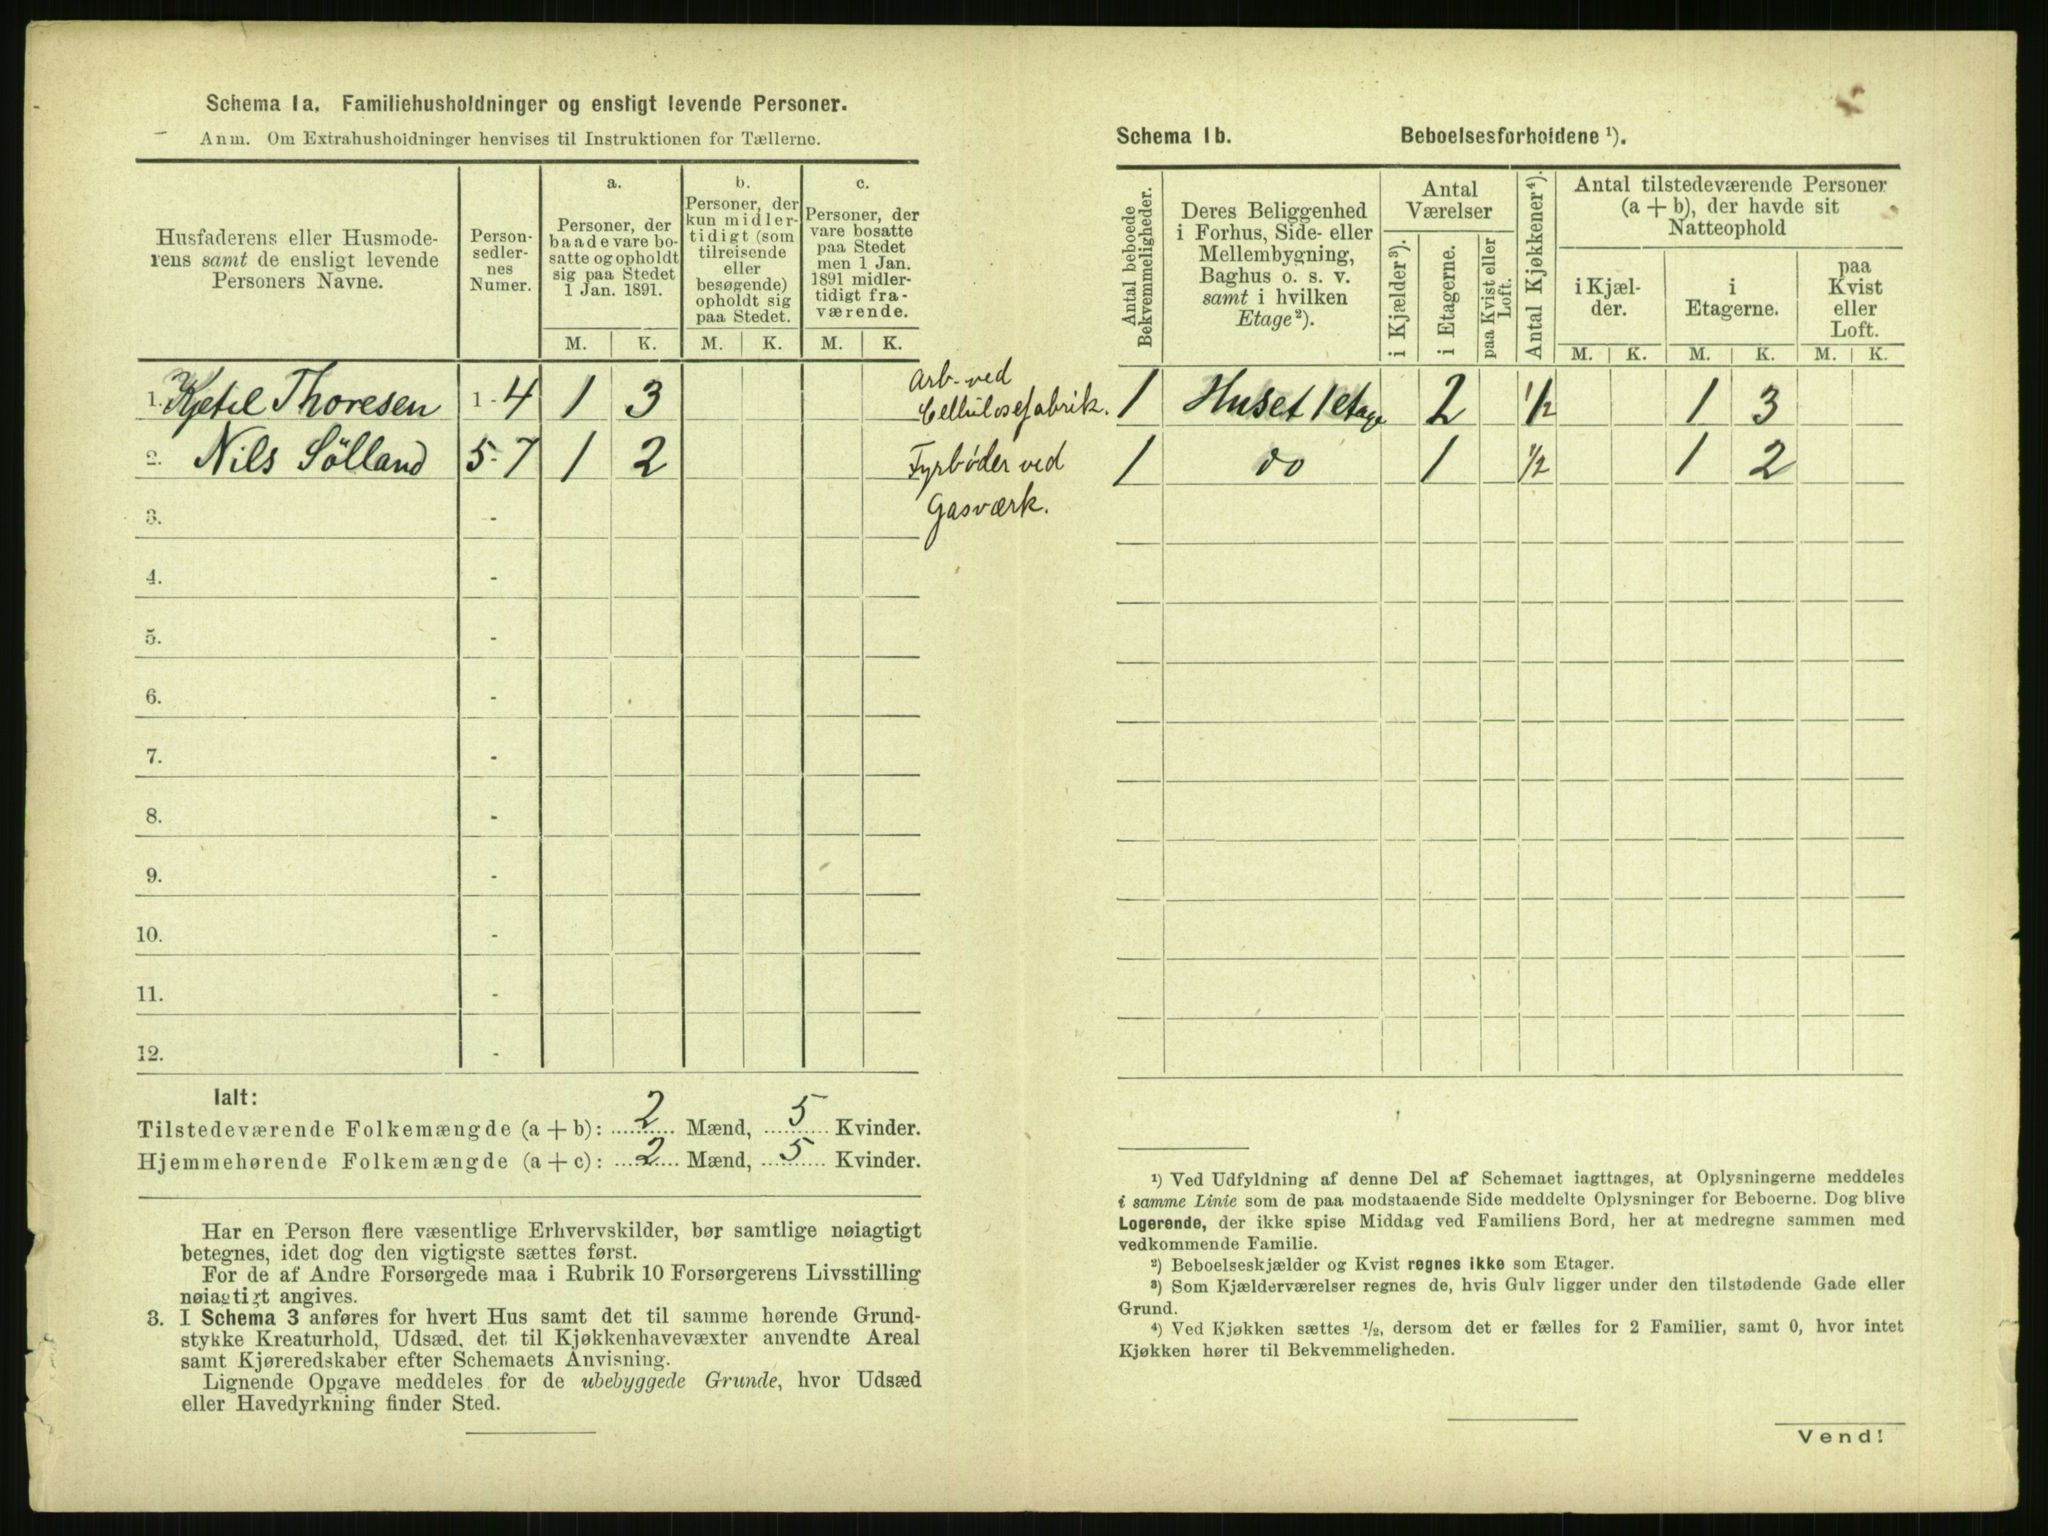 Schema 1a. Familiehusholdninger og ensligt levende Personer.
Anm. Om Extrahusholdninger henvises til Instruktionen for Tællerne.
Husfaderens eller Husmode-
rens samt de ensligt levende
Personers Navne.
Person-
sedler-
nes
Numer.
a.
Personer, der
baade vare bo-
satte og opholdt
sig paa Stedet
1 Jan. 1891.
b.
Personer, der
kun midler-
tidigt (som
tilreisende
eller
besøgende)
opholdt sig
paa Stedet.
c.
Personer, der
vare bosatte
paa Stedet
men 1 Jan.
1891 midler-
tidigt fra-
værende.
M. K. M. K. M. K.
1. Kjetil Thoresen 1-4 1 3
Arb. ved
Cellulosefabrik.
2. Nils Sölland 5-7 1 2
Fyrbøder ved
Gasværk.
3. -
4. -
5. -
6. -
7. -
8. -
9. -
10. -
11. -
12. -
Ialt:
Tilstedeværende Folkemængde (a + b): 2 Mænd, 5 Kvinder.
Hjemmehørende Folkemængde (a + c): 2 Mænd, 5 Kvinder.
Har en Person flere væsentlige Erhvervskilder, bør samtlige nøiagtigt
betegnes, idet dog den vigtigste sættes først.
For de af Andre Forsørgede maa i Rubrik 10 Forsørgerens Livsstilling
nøiagtigt angives.
3. I Schema 3 anføres for hvert Hus samt det til samme hørende Grund-
stykke Kreaturhold, Udsæd, det til Kjøkkenhavevæxter anvendte Areal
samt Kjøreredskaber efter Schemaets Anvisning.
Lignende Opgave meddeles for de ubebyggede Grunde, hvor Udsæd
eller Havedyrkning finder Sted.
Schema 1b. Beboelsesforholdene ¹).
Antal beboede
Bekvemmeligheder.
Deres Beliggenhed
i Forhus, Side- eller
Mellembygning,
Baghus o. s. v.
samt i hvilken
Etage²).
Antal
Værelser
i Kjælder³).
i Etagerne.
paa Kvist eller
Loft.
Antal Kjøkkener⁴).
Antal tilstedeværende Personer
(a + b), der havde sit
Natteophold
i Kjæl-
der.
i
Etagerne.
paa
Kvist
eller
Loft.
M. K. M. K. M. K.
1 Huset 1 etage 2 ½ 1 3
1 do 1 ½ 1 2
¹) Ved Udfyldning af denne Del af Schemaet iagttages, at Oplysningerne meddeles
i samme Linie som de paa modstaaende Side meddelte Oplysninger for Beboerne. Dog blive
Logerende, der ikke spise Middag ved Familiens Bord, her at medregne sammen med
vedkommende Familie.
²) Beboelseskjælder og Kvist regnes ikke som Etager.
³) Som Kjælderværelser regnes de, hvis Gulv ligger under den tilstødende Gade eller
Grund.
⁴) Ved Kjøkken sættes ½, dersom det er fælles for 2 Familier, samt 0, hvor intet
Kjøkken hører til Bekvemmeligheden.
Vend!